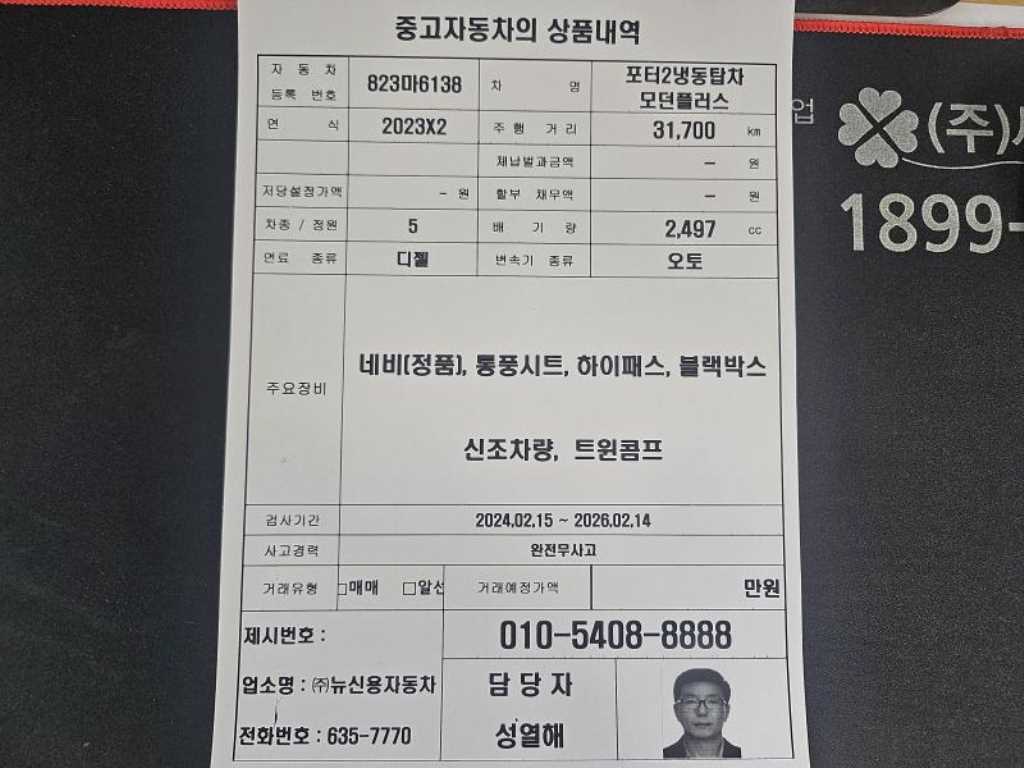 중고자동차의 상품내역
자 동 차
등록 번호
823마6138
차 명
포터2냉동탑차
모던플러스
연 식
2023X2
주 행 거 리
31,700 km
체납벌과금액
- 원
저당설정가액
- 원
할부 채무액
- 원
차종 / 정원
5
배 기 량
2,497 cc
연료 종류
디젤
변속기 종류
오토
주요장비
네비(정품), 통풍시트, 하이패스, 블랙박스
신조차량, 트윈콤프
검사기간
2024.02.15 ~ 2026.02.14
사고경력
완전무사고
거래유형
□매매 □알선
거래예정가액
만원
제시번호 :
010-5408-8888
업소명 : ㈜뉴신용자동차
담 당 자
전화번호 : 635-7770
성열해
업
(주)
1899-